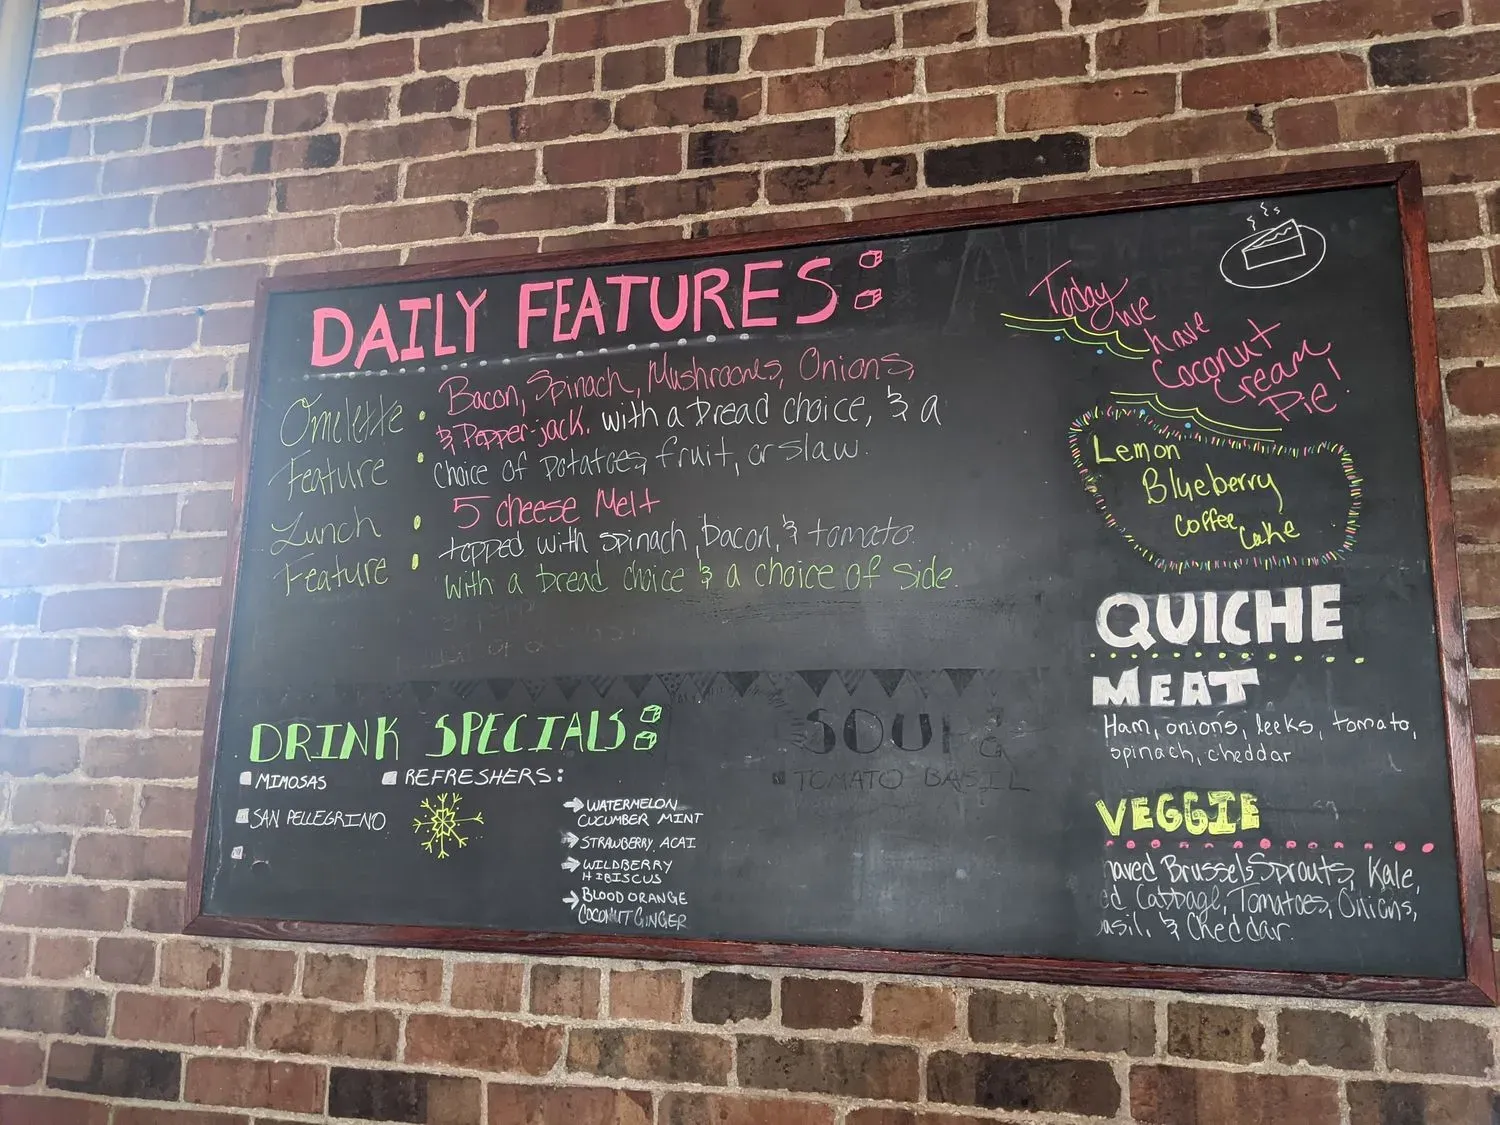 DAILY FEATURES:
Omelette :
Feature
Bacon, Spinach, Mushrooms, Onions,
& Pepper-jack. with a bread choice, & a
choice of potatoes, fruit, or slaw.
Lunch :
Feature
5 cheese Melt
topped with spinach, bacon, & tomato.
with a bread choice & a choice of side.
DRINK SPECIALS:
MIMOSAS
SAN PELLEGRINO
REFRESHERS:
WATERMELON
CUCUMBER MINT
STRAWBERRY ACAI
WILDBERRY
HIBISCUS
BLOOD ORANGE
COCONUT GINGER
SOUP:
TOMATO BASIL
Today
we
have
Coconut
Cream
Pie!
Lemon
Blueberry
Coffee
Cake
QUICHE
MEAT
Ham, onions, leeks, tomato,
spinach, cheddar
VEGGIE
haved Brussels Sprouts, Kale,
ed Cabbage, Tomatoes, Onions,
asil, & Cheddar.